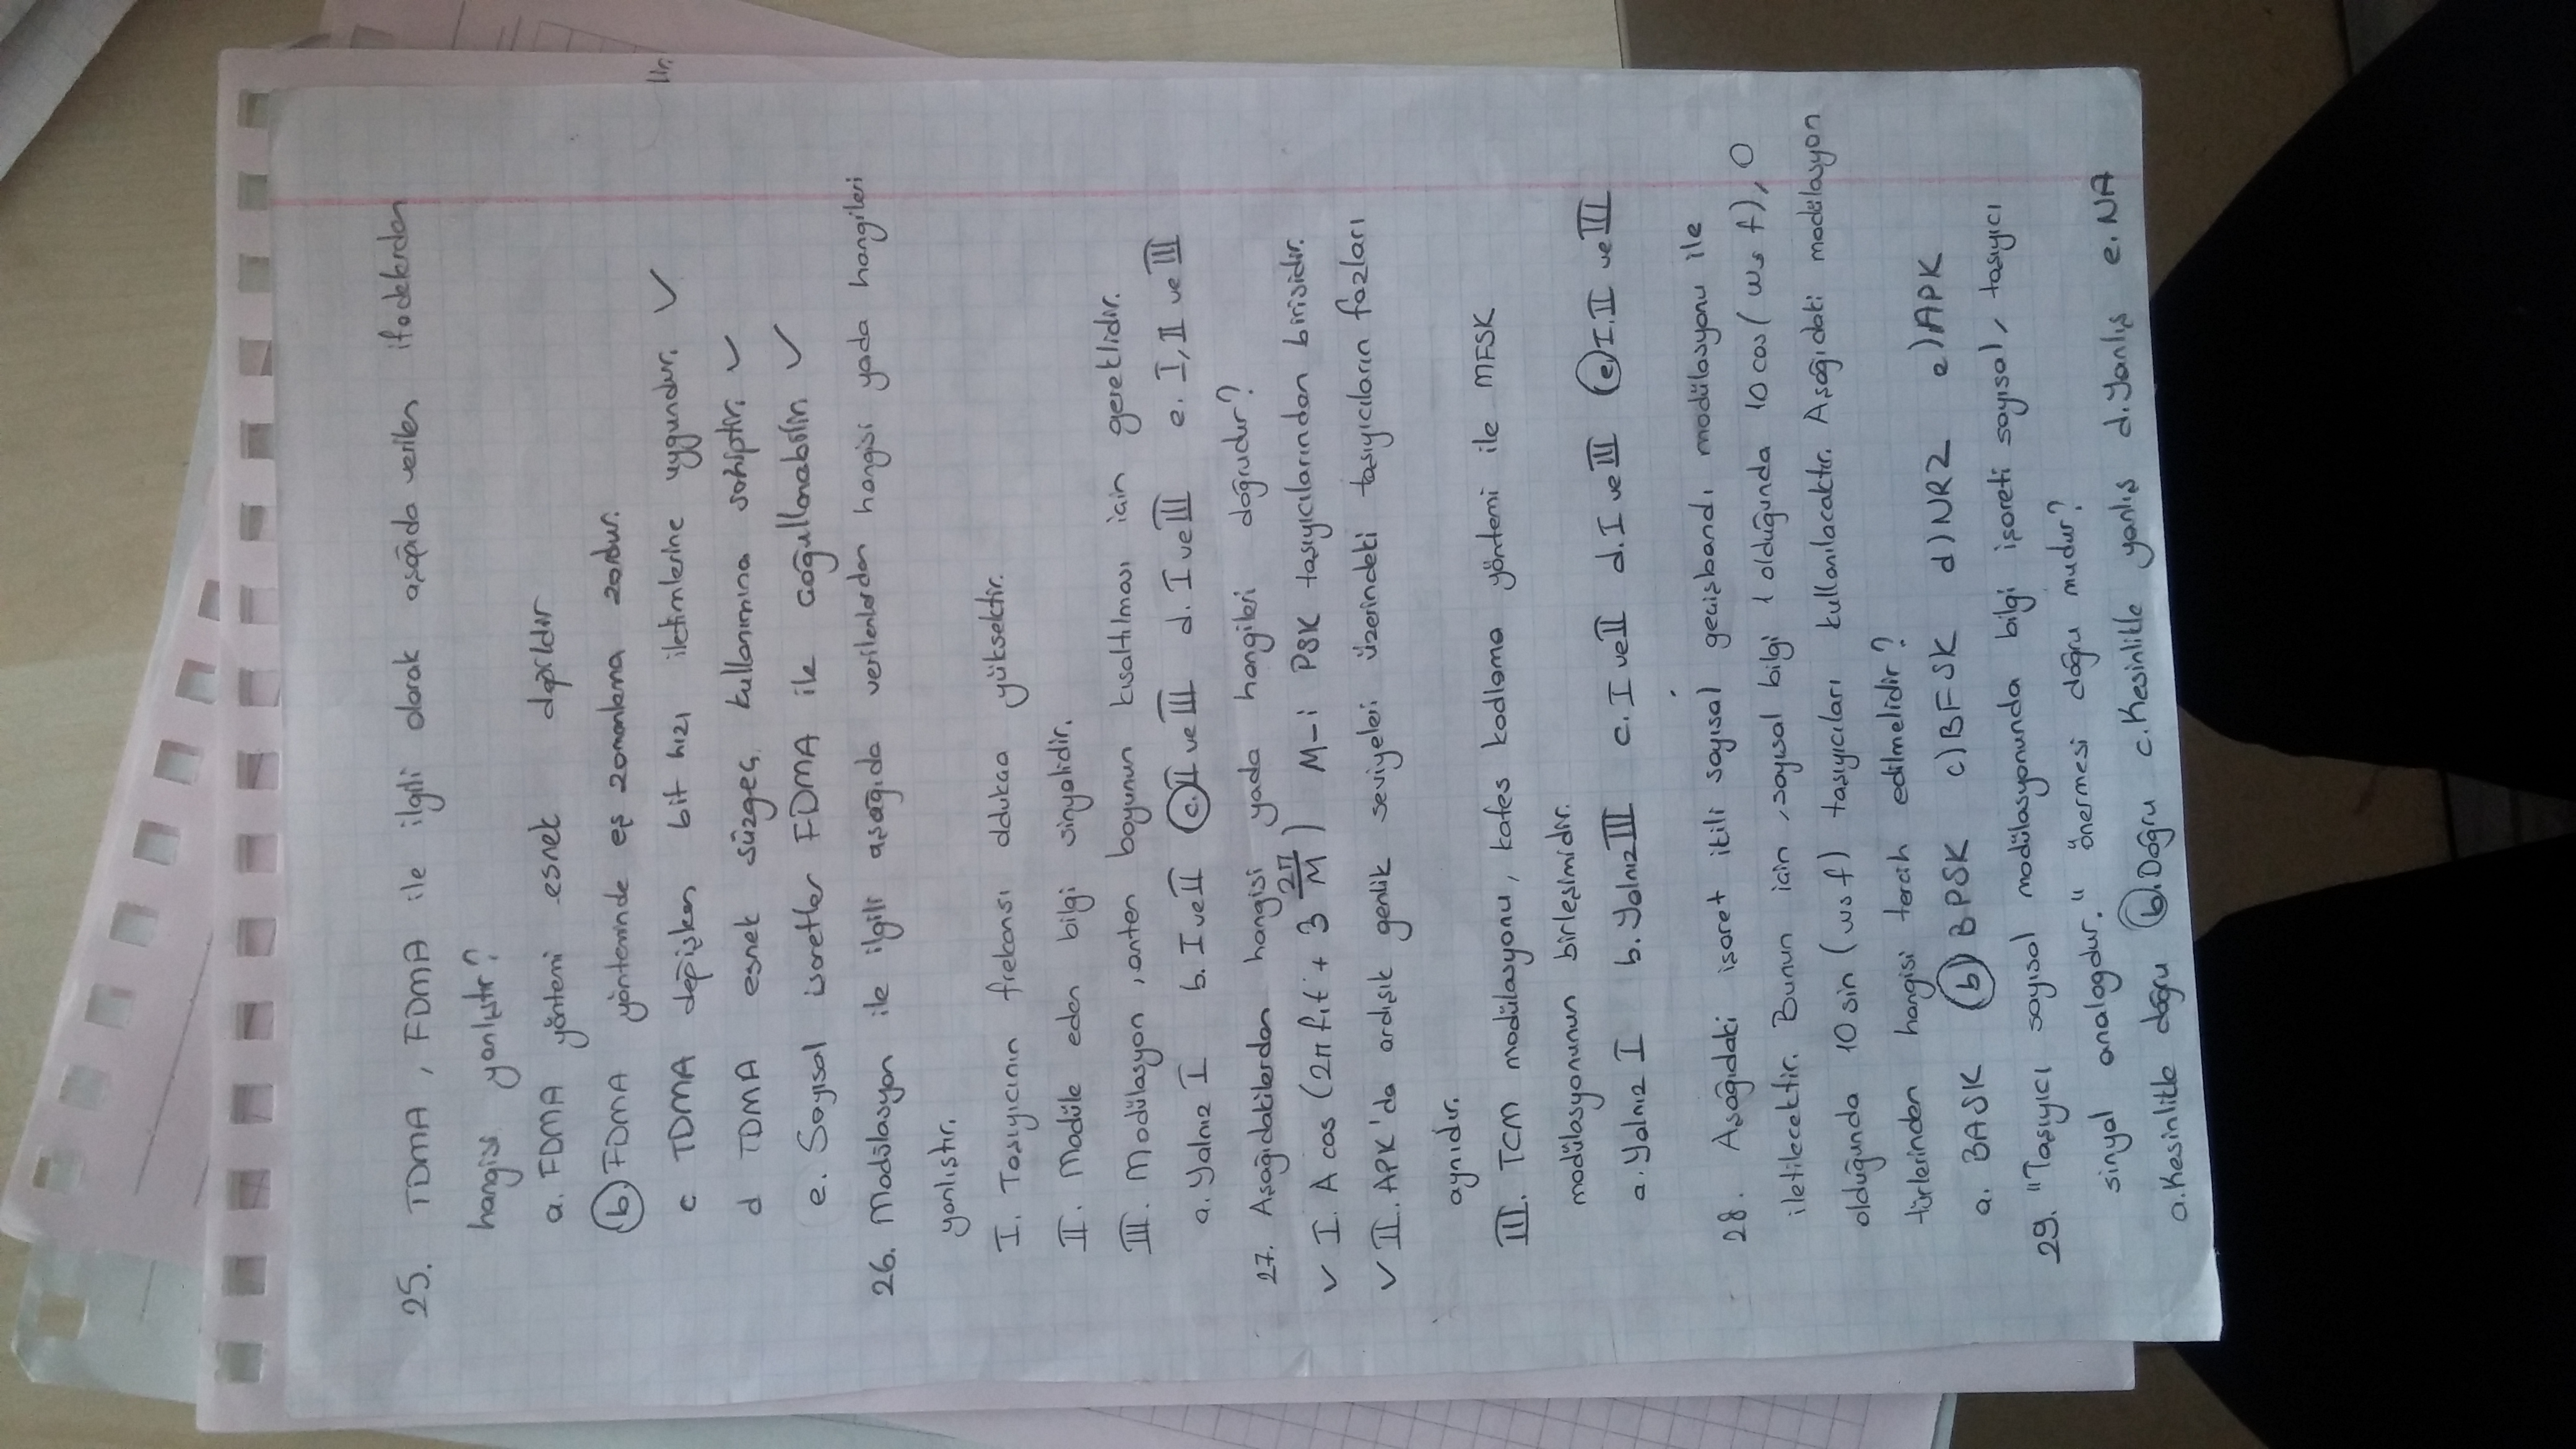 25. TDMA, FDMA ile ilgili olarak aşağıda verilen ifadelerden
hangisi yanlıştır?
a. FDMA yöntemi esnek değildir
b. FDMA yönteminde eş zamanlama zordur.
c TDMA değişken bit hızı iletimlerine uygundur. ✓
d TDMA esnek süzgeç kullanımına sahiptir. ✓
e. Sayısal işaretler FDMA ile çoğullanabilir. ✓
lir.
26. Modülasyon ile ilgili aşağıda verilenlerden hangisi yada hangileri
yanlıştır.
I. Taşıyıcının frekansı oldukça yüksektir.
II. Modüle eden bilgi sinyalidir.
III. Modülasyon, anten boyunun kısaltılması için gereklidir.
a. Yalnız I b. I ve II c. II ve III d. I ve III e. I, II ve III
27. Aşağıdakilerden hangisi yada hangileri doğrudur?
✓ I. A cos (2π f₁t + 3 2π/M) M-i PSK taşıyıcılarından birisidir.
✓ II. APK'da ardışık genlik seviyeleri üzerindeki taşıyıcıların fazları
aynıdır.
III. TCM modülasyonu, kafes kodlama yöntemi ile MFSK
modülasyonunun birleşimidir.
a. Yalnız I b. Yalnız III c. I ve II d. I ve III e. I. II ve III
28. Aşağıdaki işaret ikili sayısal geçişbandı modülasyonu ile
iletilecektir. Bunun için, sayısal bilgi 1 olduğunda 10 cos( ws f), 0
olduğunda 10 sin (ws f) taşıyıcıları kullanılacaktır. Aşağıdaki modülasyon
türlerinden hangisi tercih edilmelidir?
a. BASK b) BPSK c) BFSK d) NRZ e) APK
29. "Taşıyıcı sayısal modülasyonunda bilgi işareti sayısal, taşıyıcı
sinyal analogdur." önermesi doğru mudur?
a. Kesinlikle doğru b. Doğru c. Kesinlikle yanlış d. Yanlış e. NA